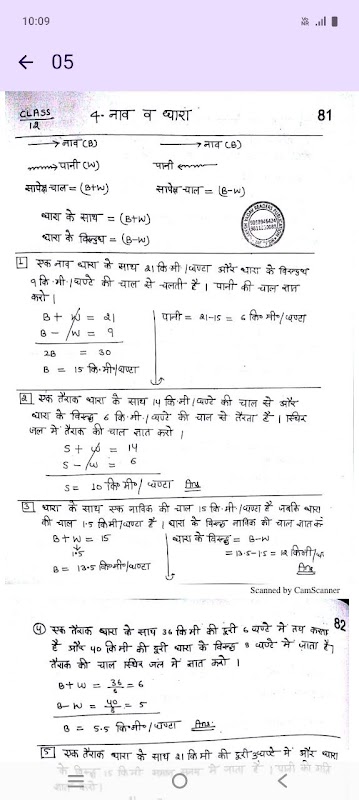 10:09
← 05
CLASS 12
4. नाव व धारा
81
→ नाव (B)
→ नाव (B)
→ पानी (W)
पानी ←
सापेक्ष चाल = (B+W)
सापेक्ष चाल = (B-W)
धारा के साथ = (B+W)
धारा के विरुध्ध = (B-W)
1 एक नाव धारा के साथ 21 कि.मी./घण्टा और धारा के विरुध्ध
9 कि.मी./घण्टे की चाल से चलती है । पानी की चाल ज्ञात
करो ।
B + W = 21
पानी = 21-15 = 6 कि॰मी॰/घण्टा
B - W = 9
2B = 30
B = 15 कि.मी॰/घण्टा
2 एक तैराक धारा के साथ 14 कि.मी./घण्टे की चाल से और
धारा के विरुध्ध 6 कि.मी./घण्टे की चाल से तैरता है । स्थिर
जल में तैराक की चाल ज्ञात करो ।
S + W = 14
S - W = 6
S = 10 कि॰मी॰/घण्टा Ans
3 धारा के साथ एक नाविक की चाल 15 कि.मी./घण्टा है जबकि धारा
की चाल 1.5 किमी/घण्टा है । धारा के विरुध्ध नाविक की चाल ज्ञात क
B + W = 15
धारा के विरुध्ध = B-W
1.5
= 13.5-1.5 = 12 किमी/घ
B = 13.5 कि॰मी॰/घण्टा
Ans
Scanned by CamScanner
82
4 एक तैराक धारा के साथ 36 कि मी की दूरी 6 घण्टे में तय करता
है और 40 कि मी की दूरी धारा के विरुध्ध 8 घण्टे में जाता है।
तैराक की चाल स्थिर जल में ज्ञात करो ।
B + W = 36/6 = 6
B - W = 40/8 = 5
B = 5.5 कि॰मी॰/घण्टा Ans.
5 एक तैराक धारा के साथ 21 कि मी की दूरी घण्टे में और धारा
के विरुध्ध 15 कि मी समय में जाता है । पानी की गति